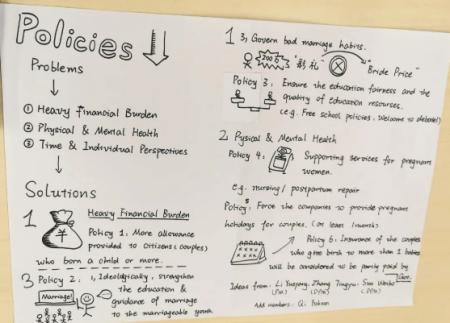 Policies
Problems
① Heavy Financial Burden
② Physical & Mental Health
③ Time & Individual Perspectives
Solutions
1 Heavy Financial Burden
¥
Policy 1: More allowance
provided to citizens (couples)
who born a child or more.
3 Policy 2: 1, Ideologically, strengthen
the education &
guidance of marriage
to the marriageable youth
Marriage!
1 3, Govern bad marriage habits.
"彩礼" "Bride Price"
Policy 3: Ensure the education fairness and the
quality of education resources.
(e.g. Free school policies, welcome to debate!)
2 Pysical & Mental Health
Policy 4: Supporting services for pregnant
women.
e.g. nursing / postpartum repair
Policy 5: Force the companies to provide pregnant
holidays for couples. (at least 1 month)
Policy 6: Insurance of the couples
who give birth to more than 1 babies
will be considered to be partly paid by
Ideas from: Li Zhang
Add numbers: Q: